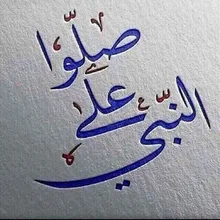 صلّوا
على
النبي